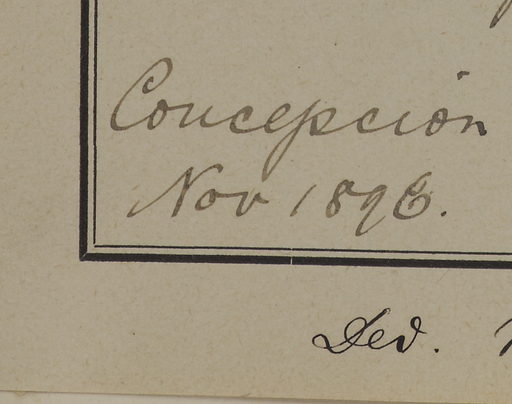 Concepción
Nov 1896.
Ded.